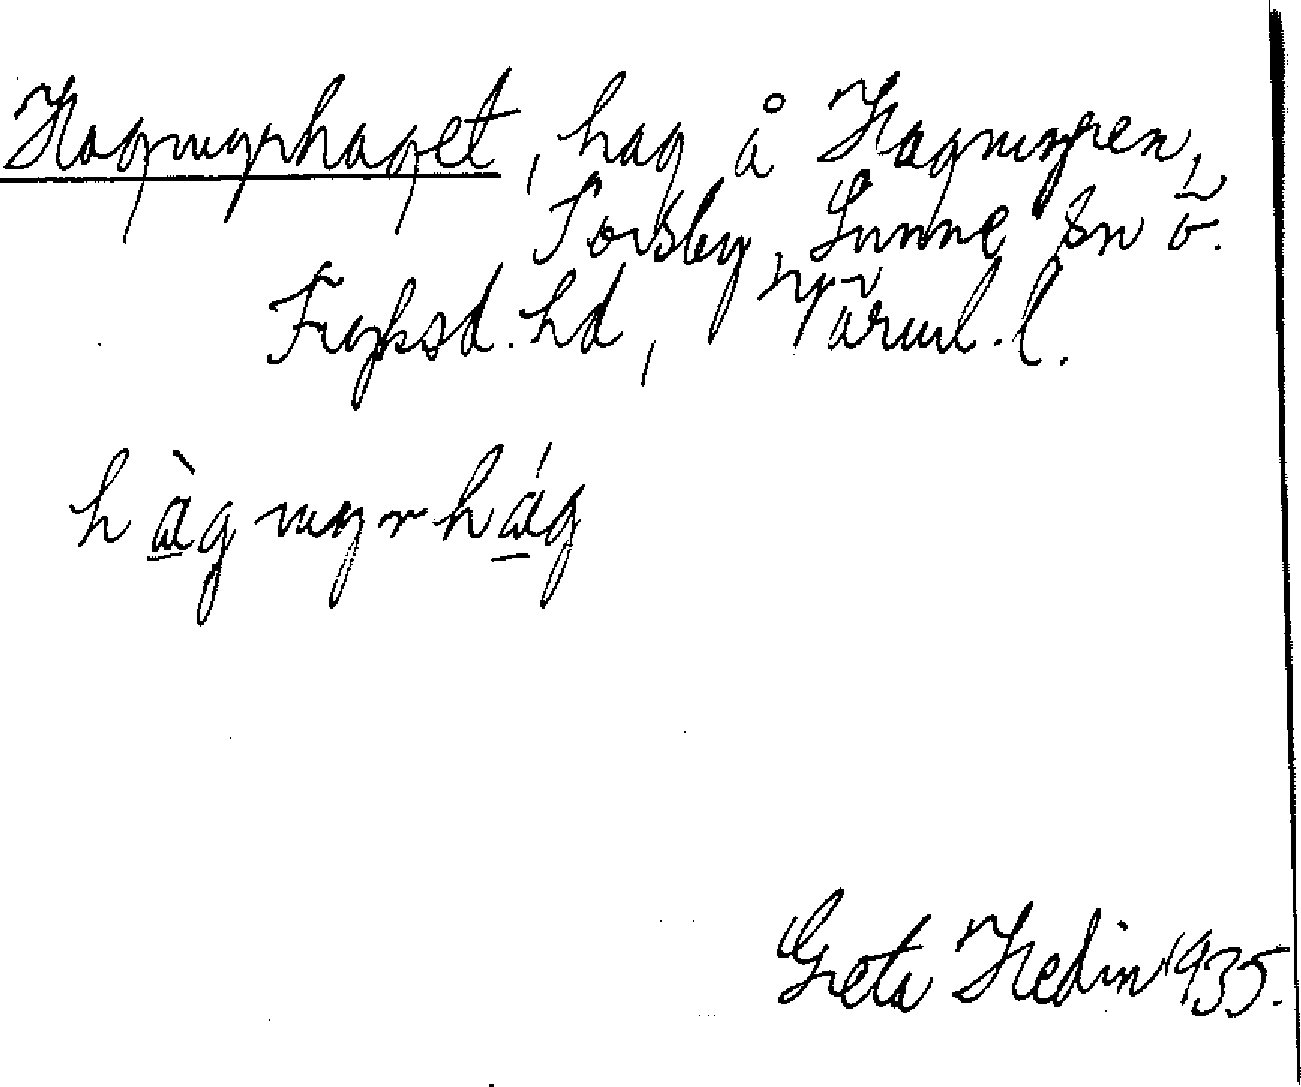 Hagmyrhaget, hag å Hagmyren,
Torsby, Sunne sn o.
Fryksd. hd, Värml. l.
hàgmyrhág
Greta Hedin 1935.